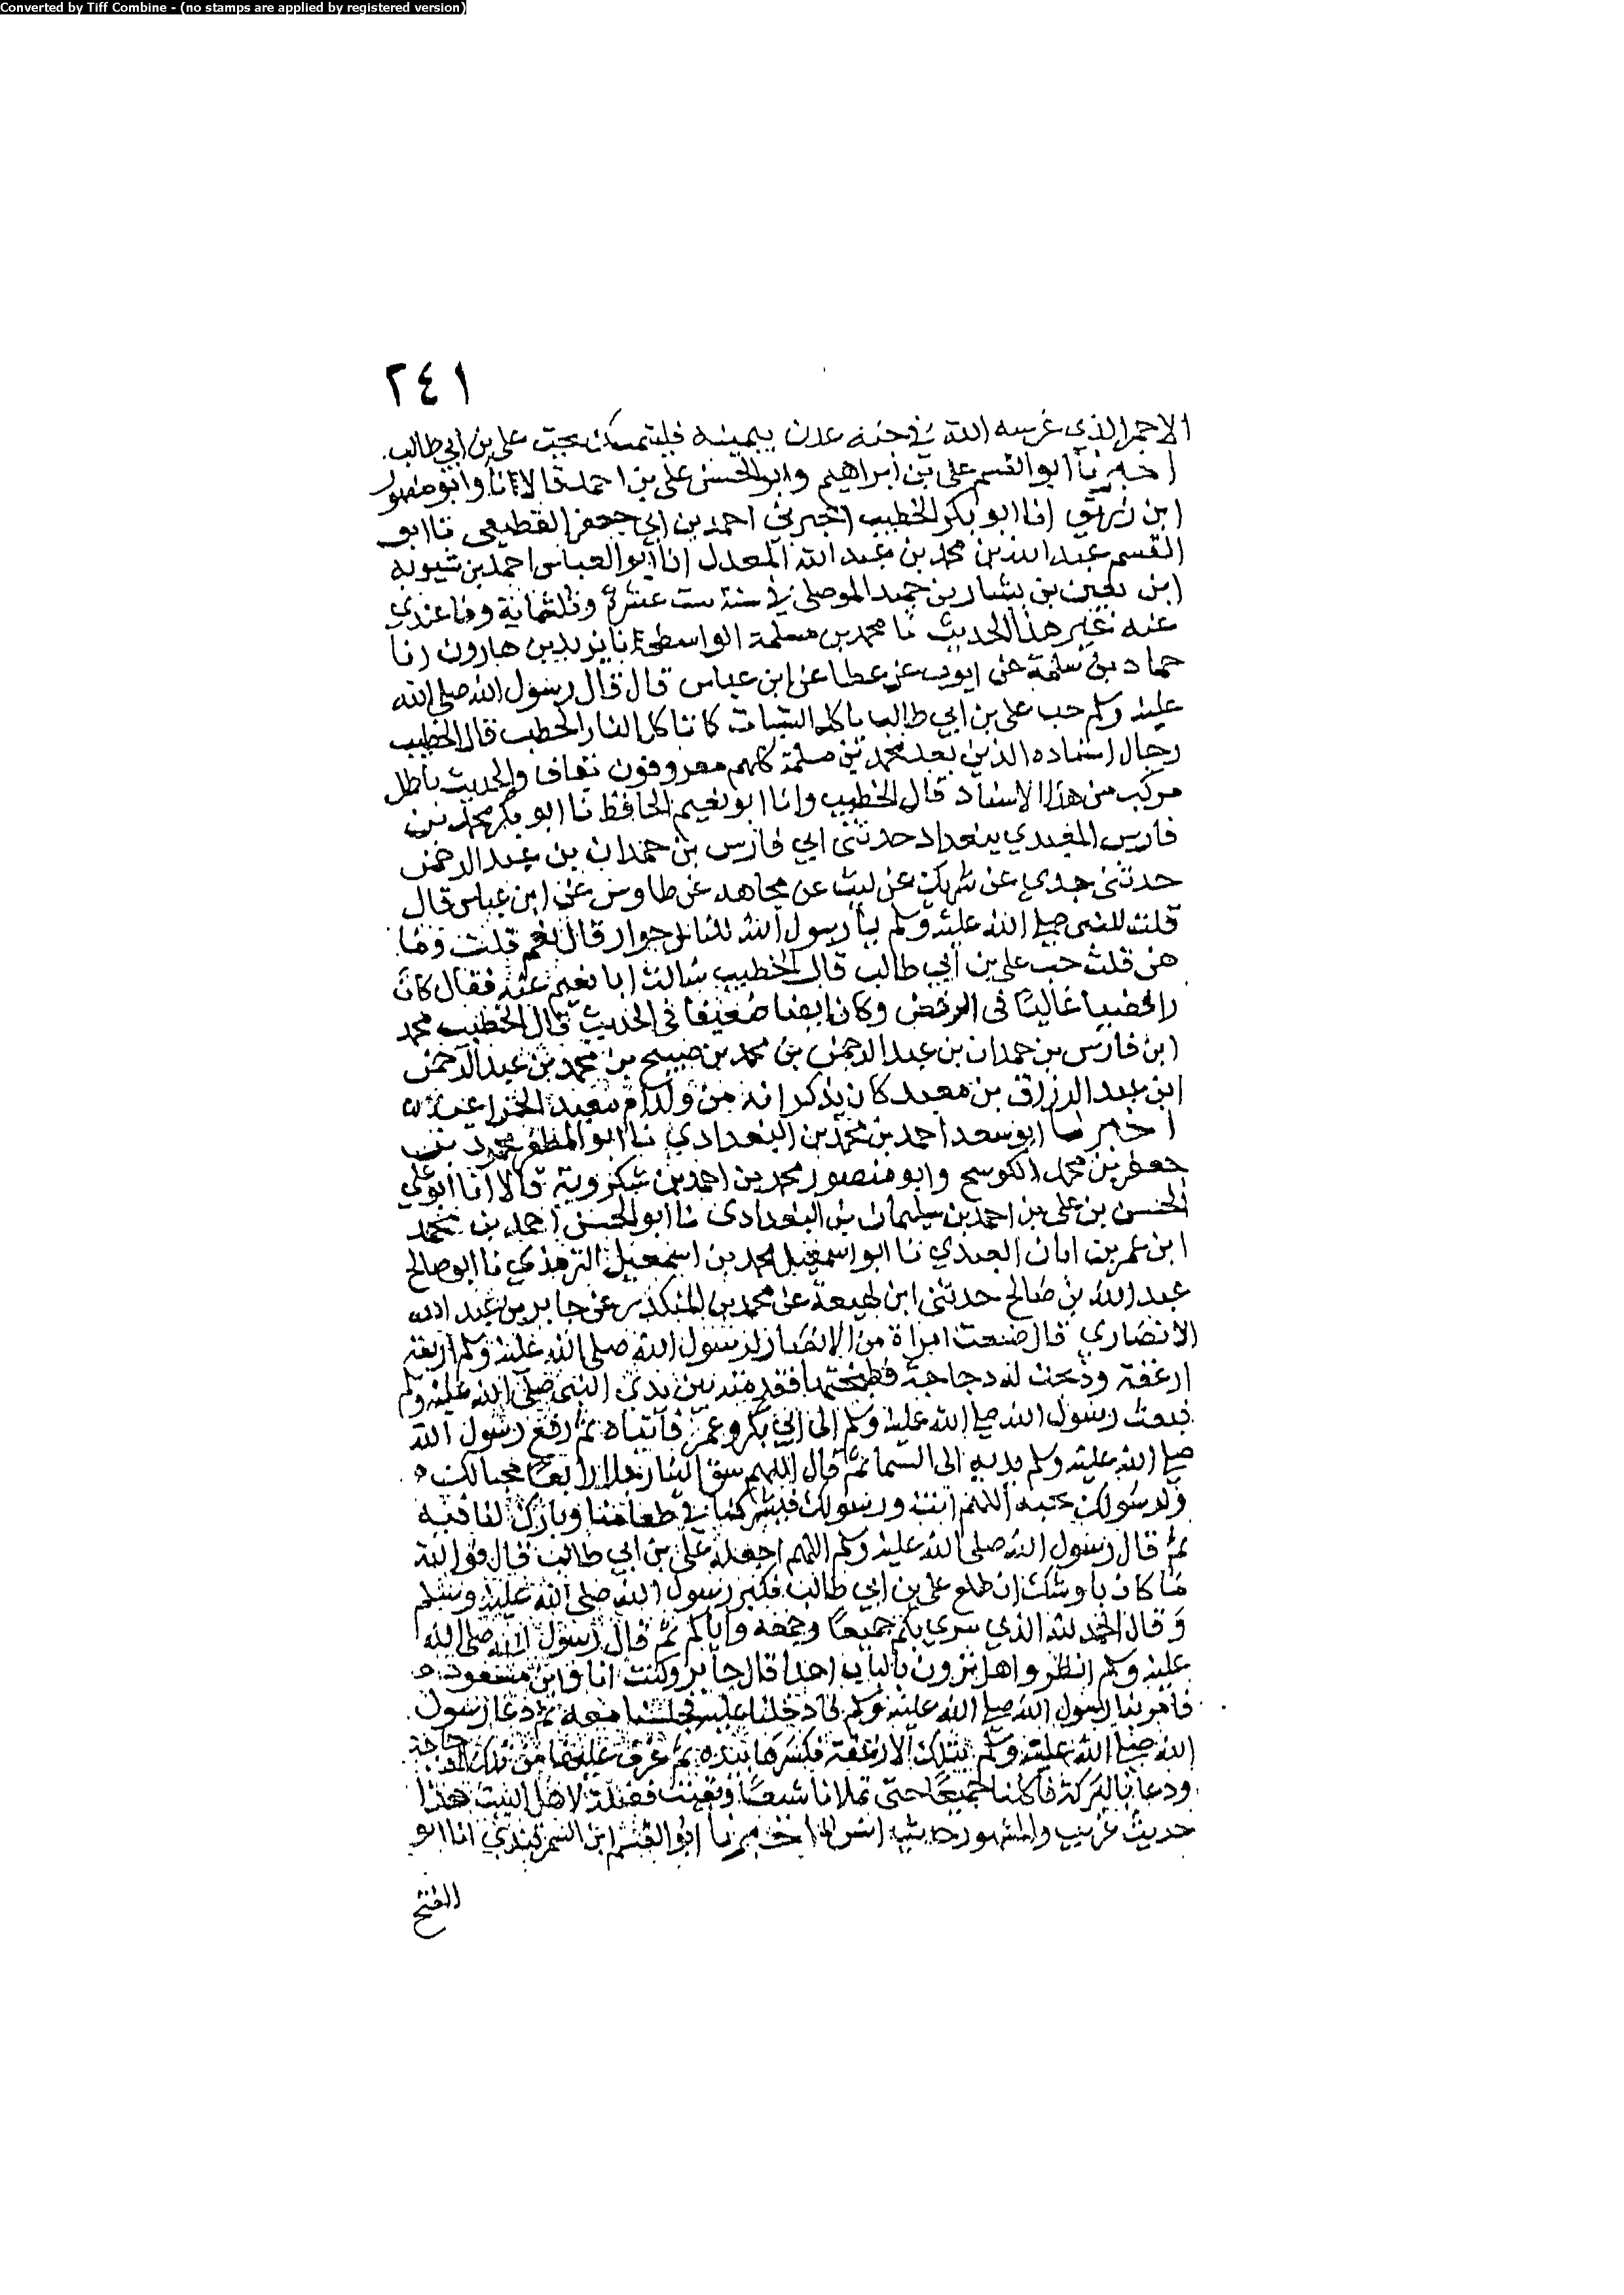 Converted by Tiff Combine - (no stamps are applied by registered version)
٢٤١
الاحمر الذي غرسه الله في جنة عدن بيمينه فليتمسك بحب علي بن ابي طالب
اخبرنا ابو القسم علي بن ابراهيم وابو الحسن علي بن احمد قالا نا وابو منصور
ابن زريق انا ابو بكر الخطيب اخبرني احمد بن ابي جعفر القطيعي نا ابو
القسم عبد الله بن محمد بن عبد الله المعدل انا ابو العباس احمد بن شبويه
ابن بشار بن حميد الموصلي في سنة ست عشرة وثلثماية وما عندي
عنه غير هذا الحديث نا محمد بن مسلمة الواسطي نا يزيد بن هارون انا
حماد بن سلمة عن ايوب عن عطا عن ابن عباس قال قال رسول الله صلى الله
عليه وسلم حب علي بن ابي طالب ياكل السيات كما تاكل النار الحطب قال الخطيب
رجال اسناده الذين بعد محمد بن مسلمة كلهم معروفون ثقات والحديث باطل
مركب من هذا الاسناد قال الخطيب وانا ابو نعيم الحافظ نا ابو بكر محمد بن
فارس المعبدي ببغداد حدثني ابي فارس بن حمدان بن عبد الرحمن
حدثني جدي عن شريك عن ليث عن مجاهد عن طاوس عن ابن عباس قال
قلت للنبي صلى الله عليه وسلم يا رسول الله للنار جوار قال نعم قلت وما
هي قلت حب علي بن ابي طالب قال الخطيب سالت ابا نعيم عنه فقال كان
رافضيا غاليا في الرفض وكان ايضا ضعيفا في الحديث قال الخطيب محمد
ابن فارس بن حمدان بن عبد الرحمن بن محمد بن صبيح بن محمد بن عبد الرحمن
ابن عبد الرزاق بن معبد كان يذكر انه من ولد ام معبد الخزاعية
اخبرنا ابو سعد احمد بن محمد بن البغدادي نا ابو المظفر محمود بن
جعفر بن محمد الكوسج وابو منصور محمد بن احمد بن شكرويه قالا انا ابو علي
الحسن بن علي بن احمد بن سليمان بن البغدادي نا ابو الحسن احمد بن محمد
ابن عمر بن ابان العبدي نا ابو اسمعيل محمد بن اسمعيل الترمذي نا ابو صالح
عبد الله بن صالح حدثني ابن لهيعة عن محمد بن المنكدر عن جابر بن عبد الله
الانصاري قال صنعت امراة من الانصار لرسول الله صلى الله عليه وسلم اربعة
ارغفة وذبحت له دجاجة فطبختها فقدمته بين يدي النبي صلى الله عليه وسلم
فبعث رسول الله صلى الله عليه وسلم الى ابي بكر وعمر فاتياه ثم رفع رسول الله
صلى الله عليه وسلم يديه الى السما ثم قال اللهم سق الينا رجلا رابعا محبا لك
ولرسولك تحبه اللهم انت ورسولك فيشركنا في طعامنا وبارك لنا فيه
ثم قال رسول الله صلى الله عليه وسلم اللهم اجعله علي بن ابي طالب قال فوالله
ما كان باوشك ان طلع علي بن ابي طالب فكبر رسول الله صلى الله عليه وسلم
وقال الحمد لله الذي سري بكم جميعا وجمعه واياكم ثم قال رسول الله صلى الله
عليه وسلم انظروا هل ترون بالباب احدا قال جابر وكنت انا وابن مسعود
فامر بنا رسول الله صلى الله عليه وسلم فادخلنا عليه فجلسنا معه ثم دعا رسول
الله صلى الله عليه وسلم بتلك الارغفة فكسرها بيده ثم غرف عليها من تلك الدجاجة
ودعا بالبركة فاكلنا جميعا حتى تملانا شبعا وبقيت فضلة لاهل البيت هذا
حديث غريب والمشهور حديث انس اخبرنا ابو القسم ابن السمرقندي انا ابو
الفتح